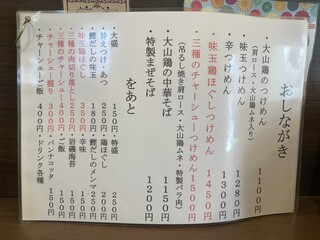 おしながき
・大山鶏のつけめん 1100円
(肩ロース・大山鶏ムネ入り)
・味玉つけめん 1280円
・辛つけめん 1300円
・味玉鶏ほぐしつけめん 1450円
・三種のチャーシューつけめん 1500円
(吊るし焼き肩ロース・大山鶏ムネ・特製バラ肉)
・大山鶏の中華そば 1150円
・特製まぜそば 1200円
をあと
・大盛 150円
・特盛 250円
・替えつけ・あつ 250円
・鶏ほぐし 200円
・鰹だしの味玉 180円
・鰹だしのメンマ 250円
・味玉鶏ほぐし 350円
・辛味 150円
・三種の肉切り落とし 250円
・岩磯海苔 150円
・三種のチャーシュー 400円
・ご飯 150円
・チャーシュー握り 300円
・パンナコッタ 150円
・チャーシューご飯 400円
・ドリンク各種